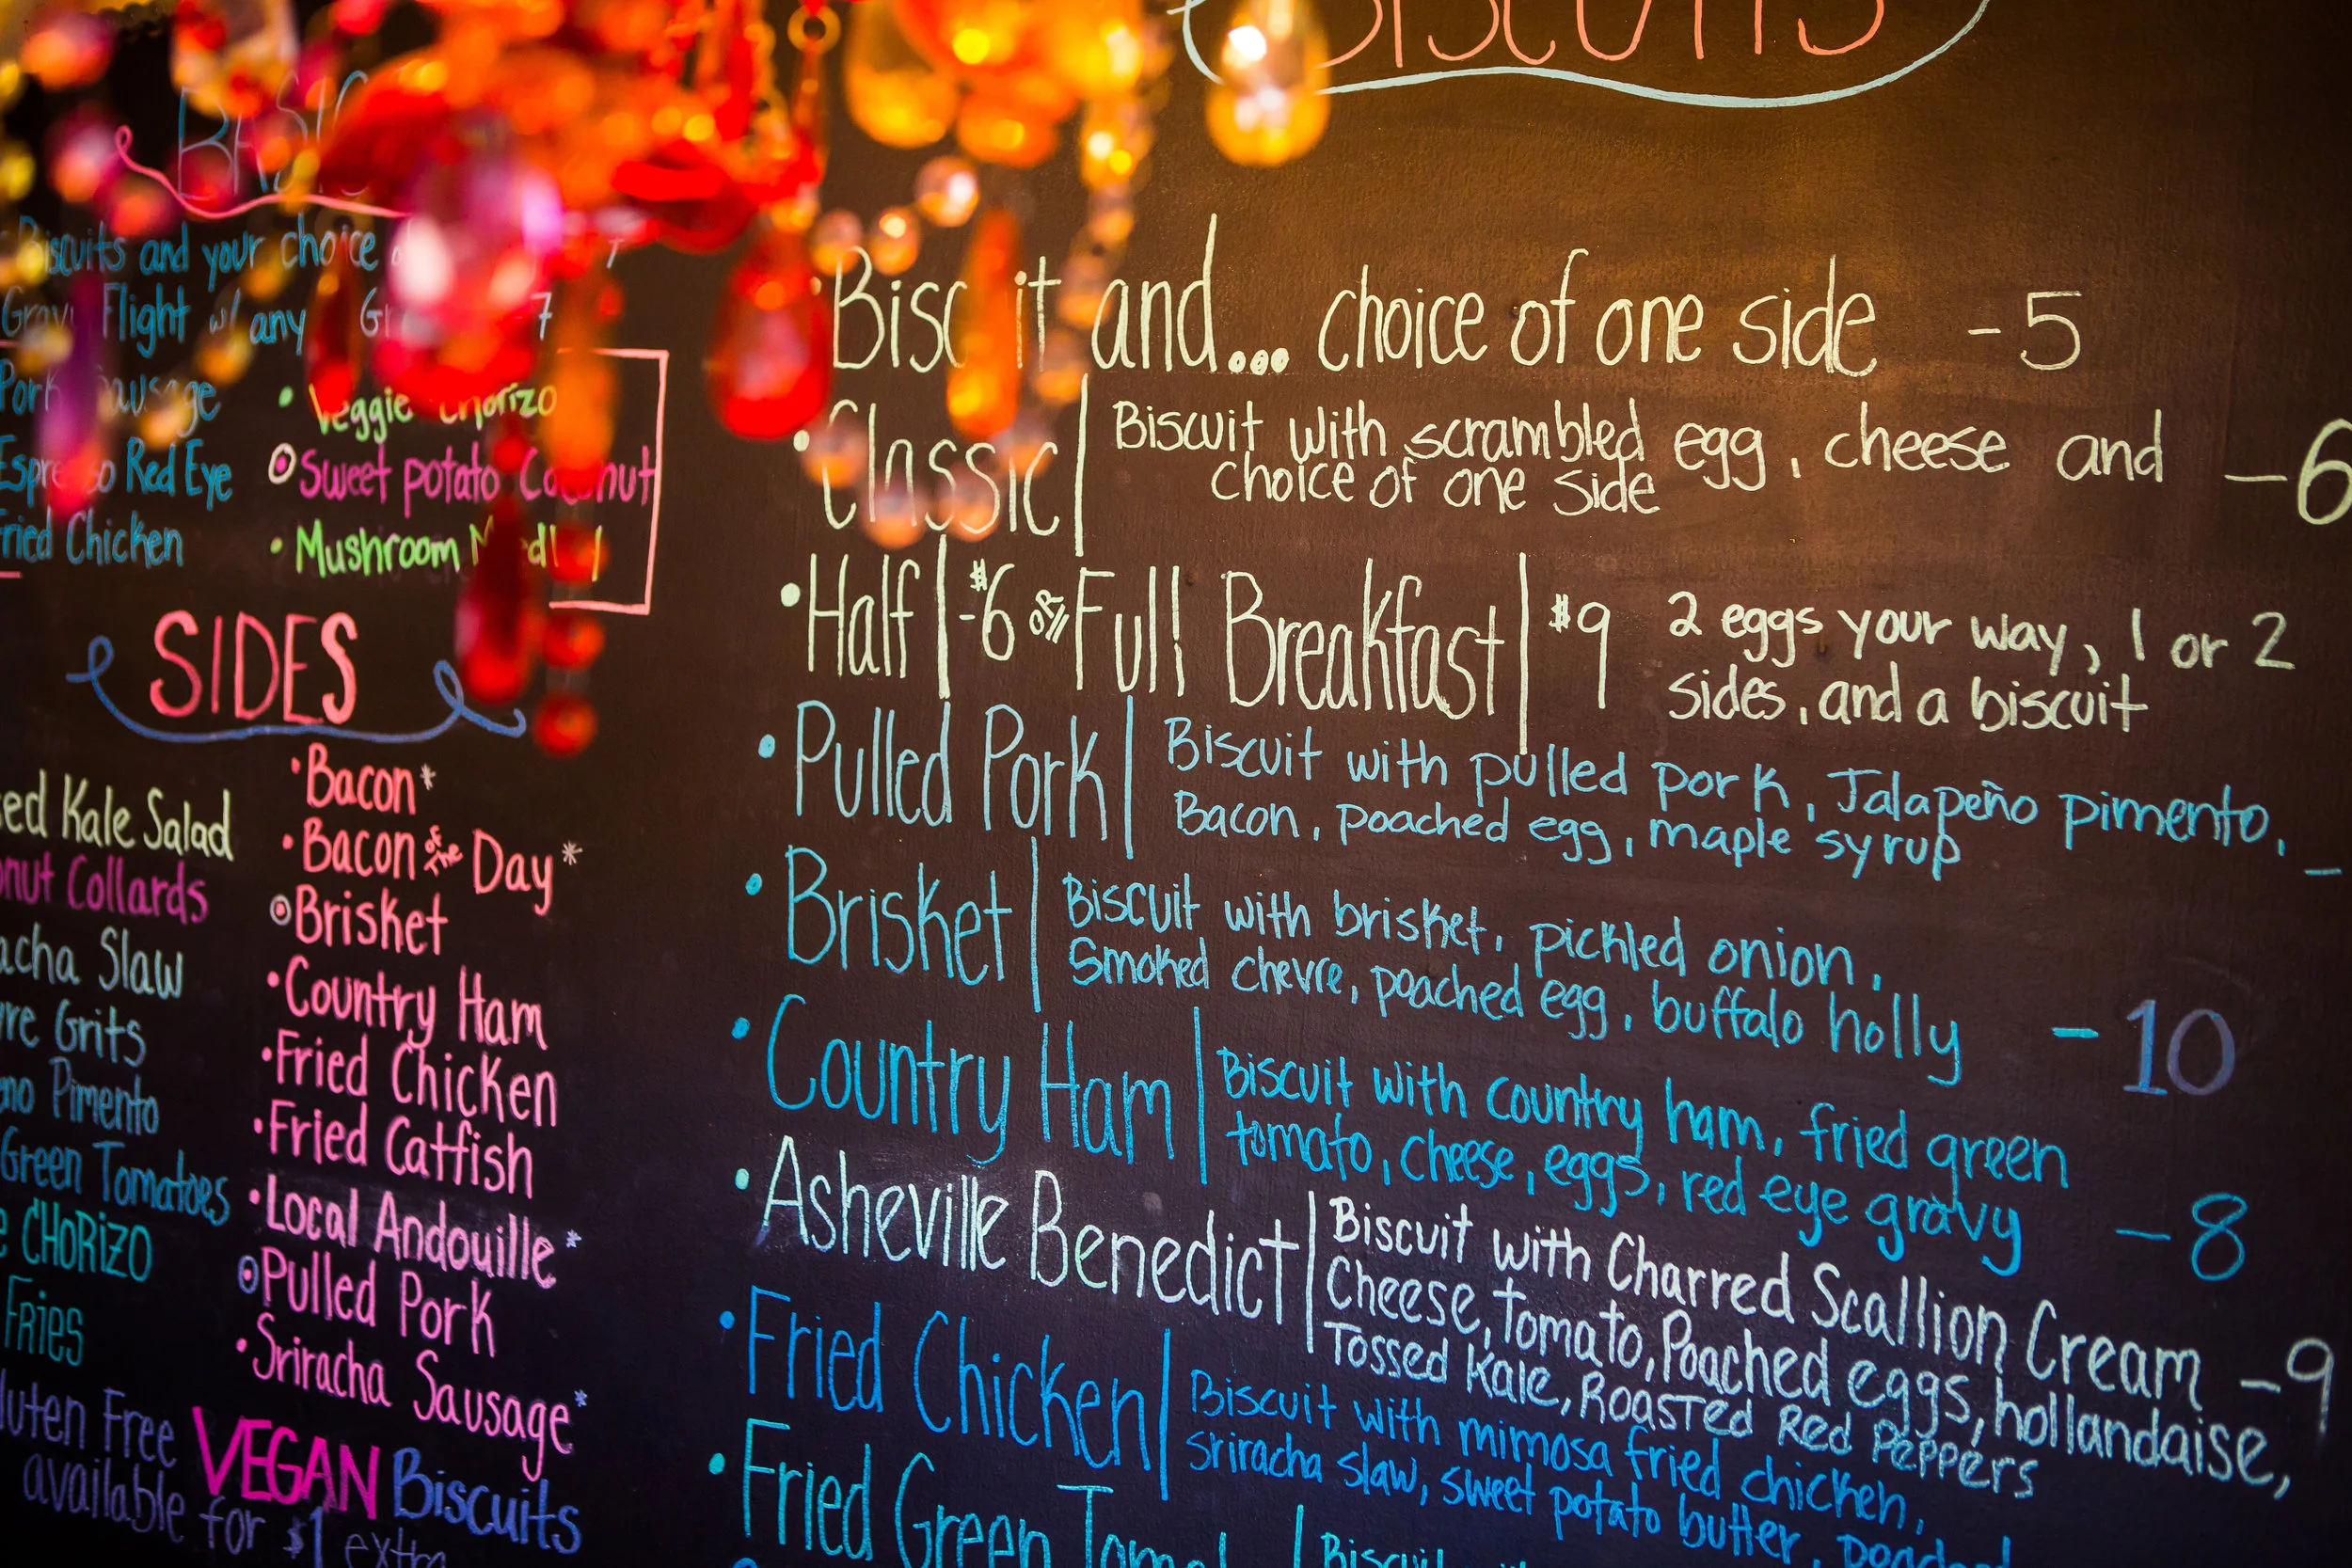 BASIC
Biscuits and your choice
Gravy Flight w/ any 7
Pork Sausage
Espresso Red Eye
Fried Chicken
• Veggie Chorizo
Sweet potato Coconut
• Mushroom
SIDES
Kale Salad
Collards
Slaw
Grits
Pimento
Green Tomatoes
CHORIZO
FRIES
• Bacon*
• Bacon of the Day*
Brisket
• Country Ham
• Fried Chicken
• Fried Catfish
• Local Andouille*
Pulled Pork
• Sriracha Sausage*
Gluten Free VEGAN Biscuits
available for $1 extra
BISCUITS
• Biscuit and... choice of one side -5
• Classic | Biscuit with scrambled egg, cheese and -6
choice of one side
• Half | -$6 OR Full Breakfast | $9 2 eggs your way, 1 or 2
sides, and a biscuit
• Pulled Pork | Biscuit with pulled pork, Jalapeño pimento, -
Bacon, poached egg, maple syrup
• Brisket | Biscuit with brisket, pickled onion,
Smoked chevre, poached egg, buffalo holly -10
• Country Ham | Biscuit with country ham, fried green
tomato, cheese, eggs, red eye gravy -8
• Asheville Benedict | Biscuit with Charred Scallion Cream -9
Cheese, Tomato, Poached eggs, hollandaise,
Tossed Kale, ROASTED Red Peppers
• Fried Chicken | Biscuit with mimosa fried chicken,
Sriracha slaw, sweet potato butter, poached
• Fried Green | Biscuit